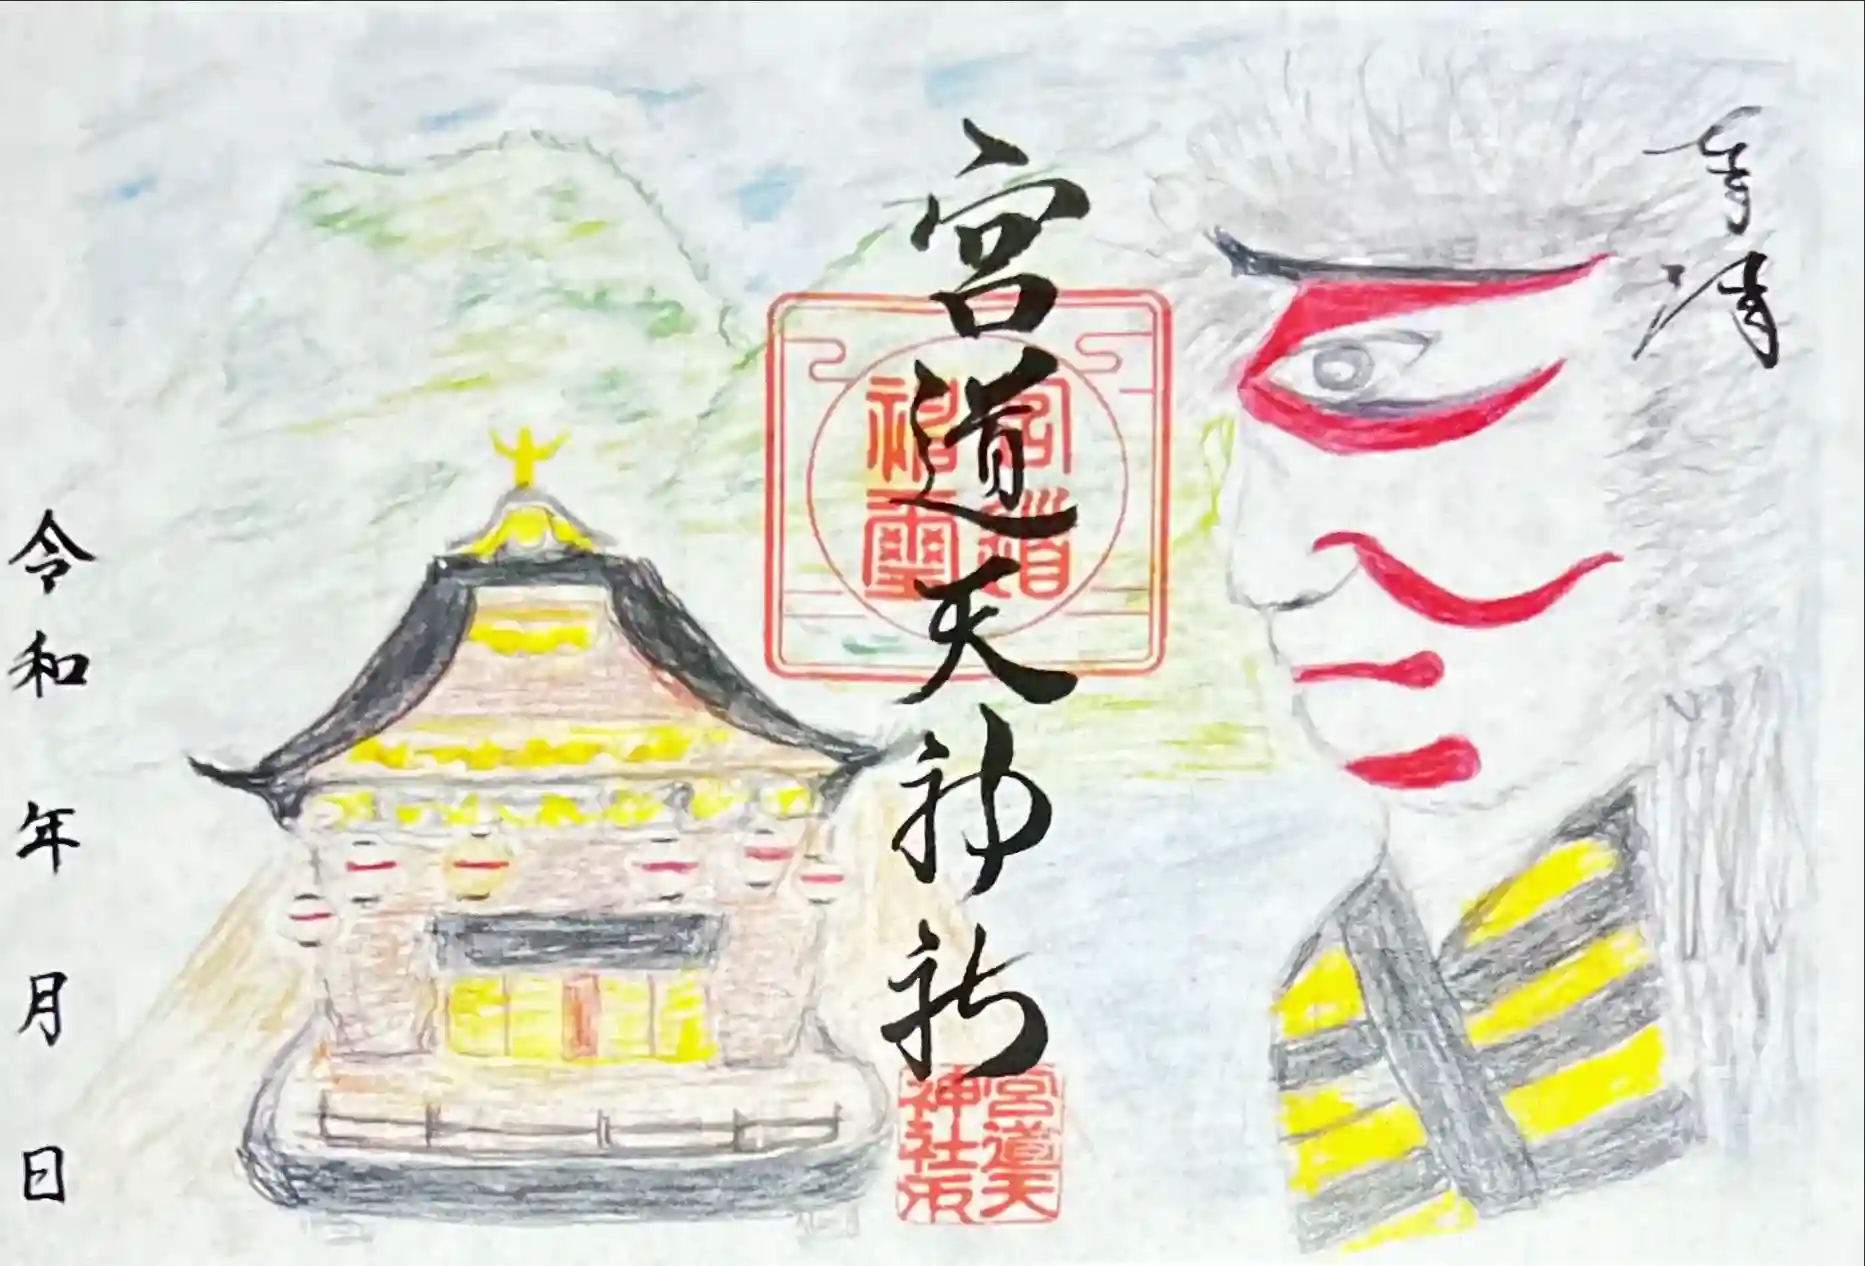 宮道天神社
宮道
神璽
宮道天
神社印
令和 年 月 日